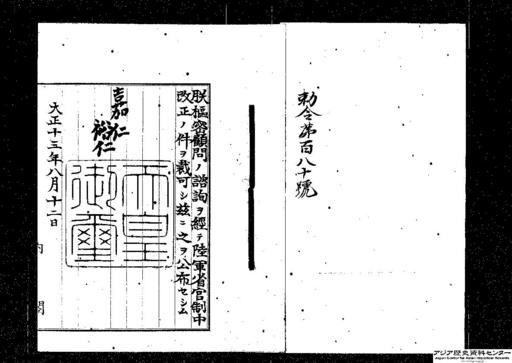 勅令第百八十號
朕樞密顧問ノ諮詢ヲ經テ陸軍省官制中
改正ノ件ヲ裁可シ茲ニ之ヲ公布セシム
嘉仁
裕仁
天皇
御璽
大正十三年八月十二日
内閣
アジア歴史資料センター
Japan Center for Asian Historical Records